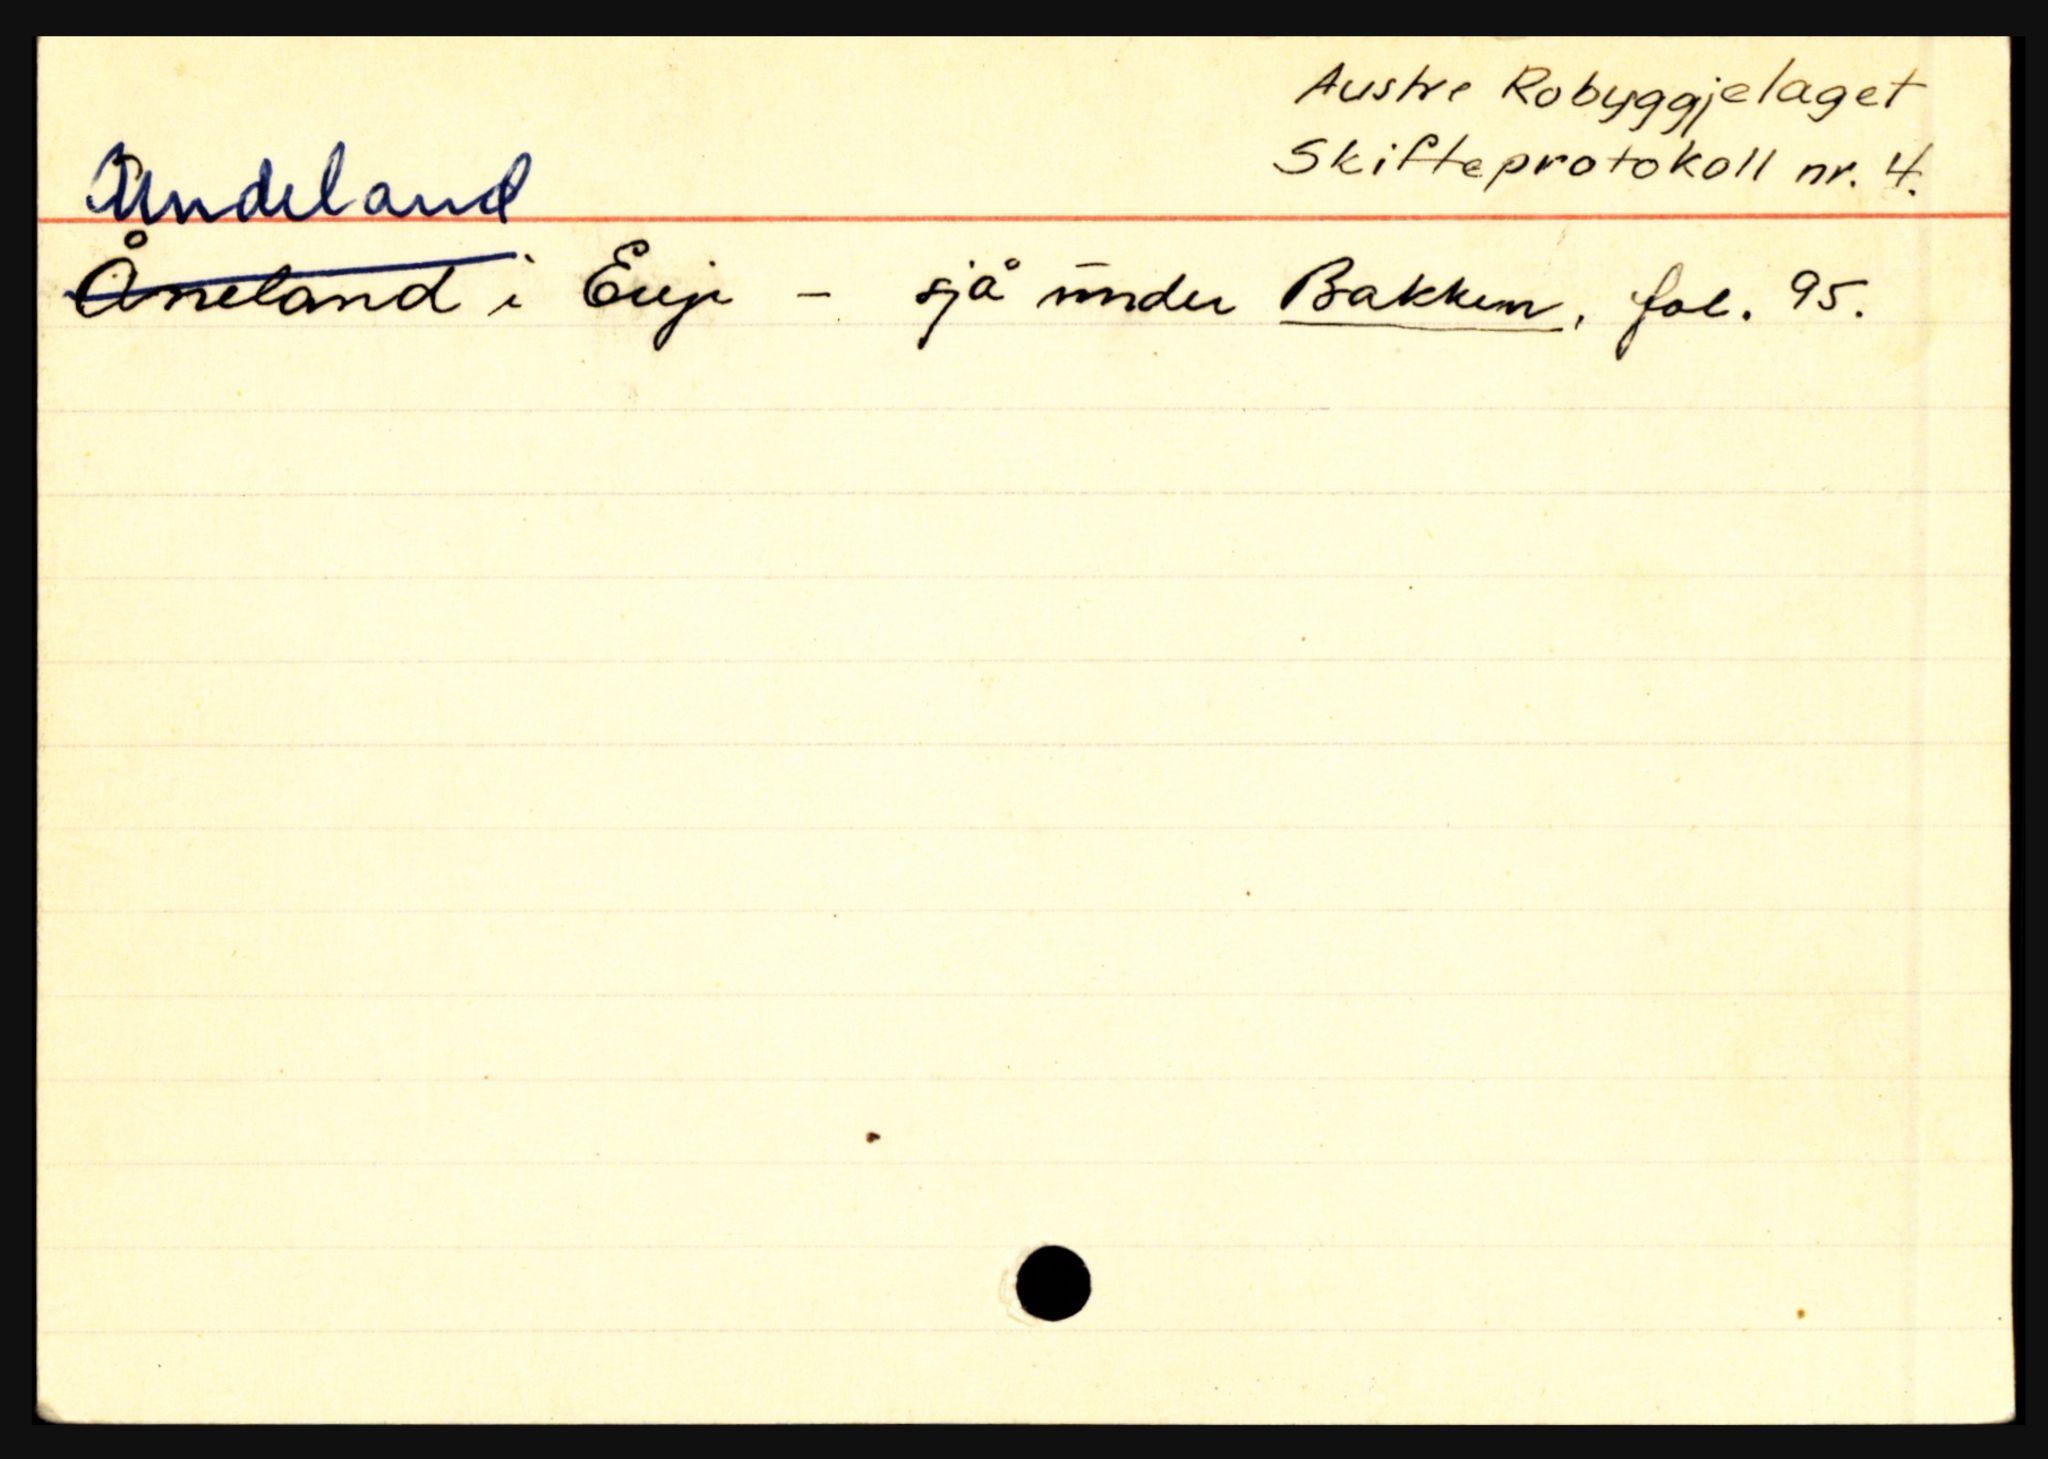 Austre Robyggjelaget
Skifteprotokoll nr. 4.
Åneland i Evje - sjå under Bakken, fol. 95.